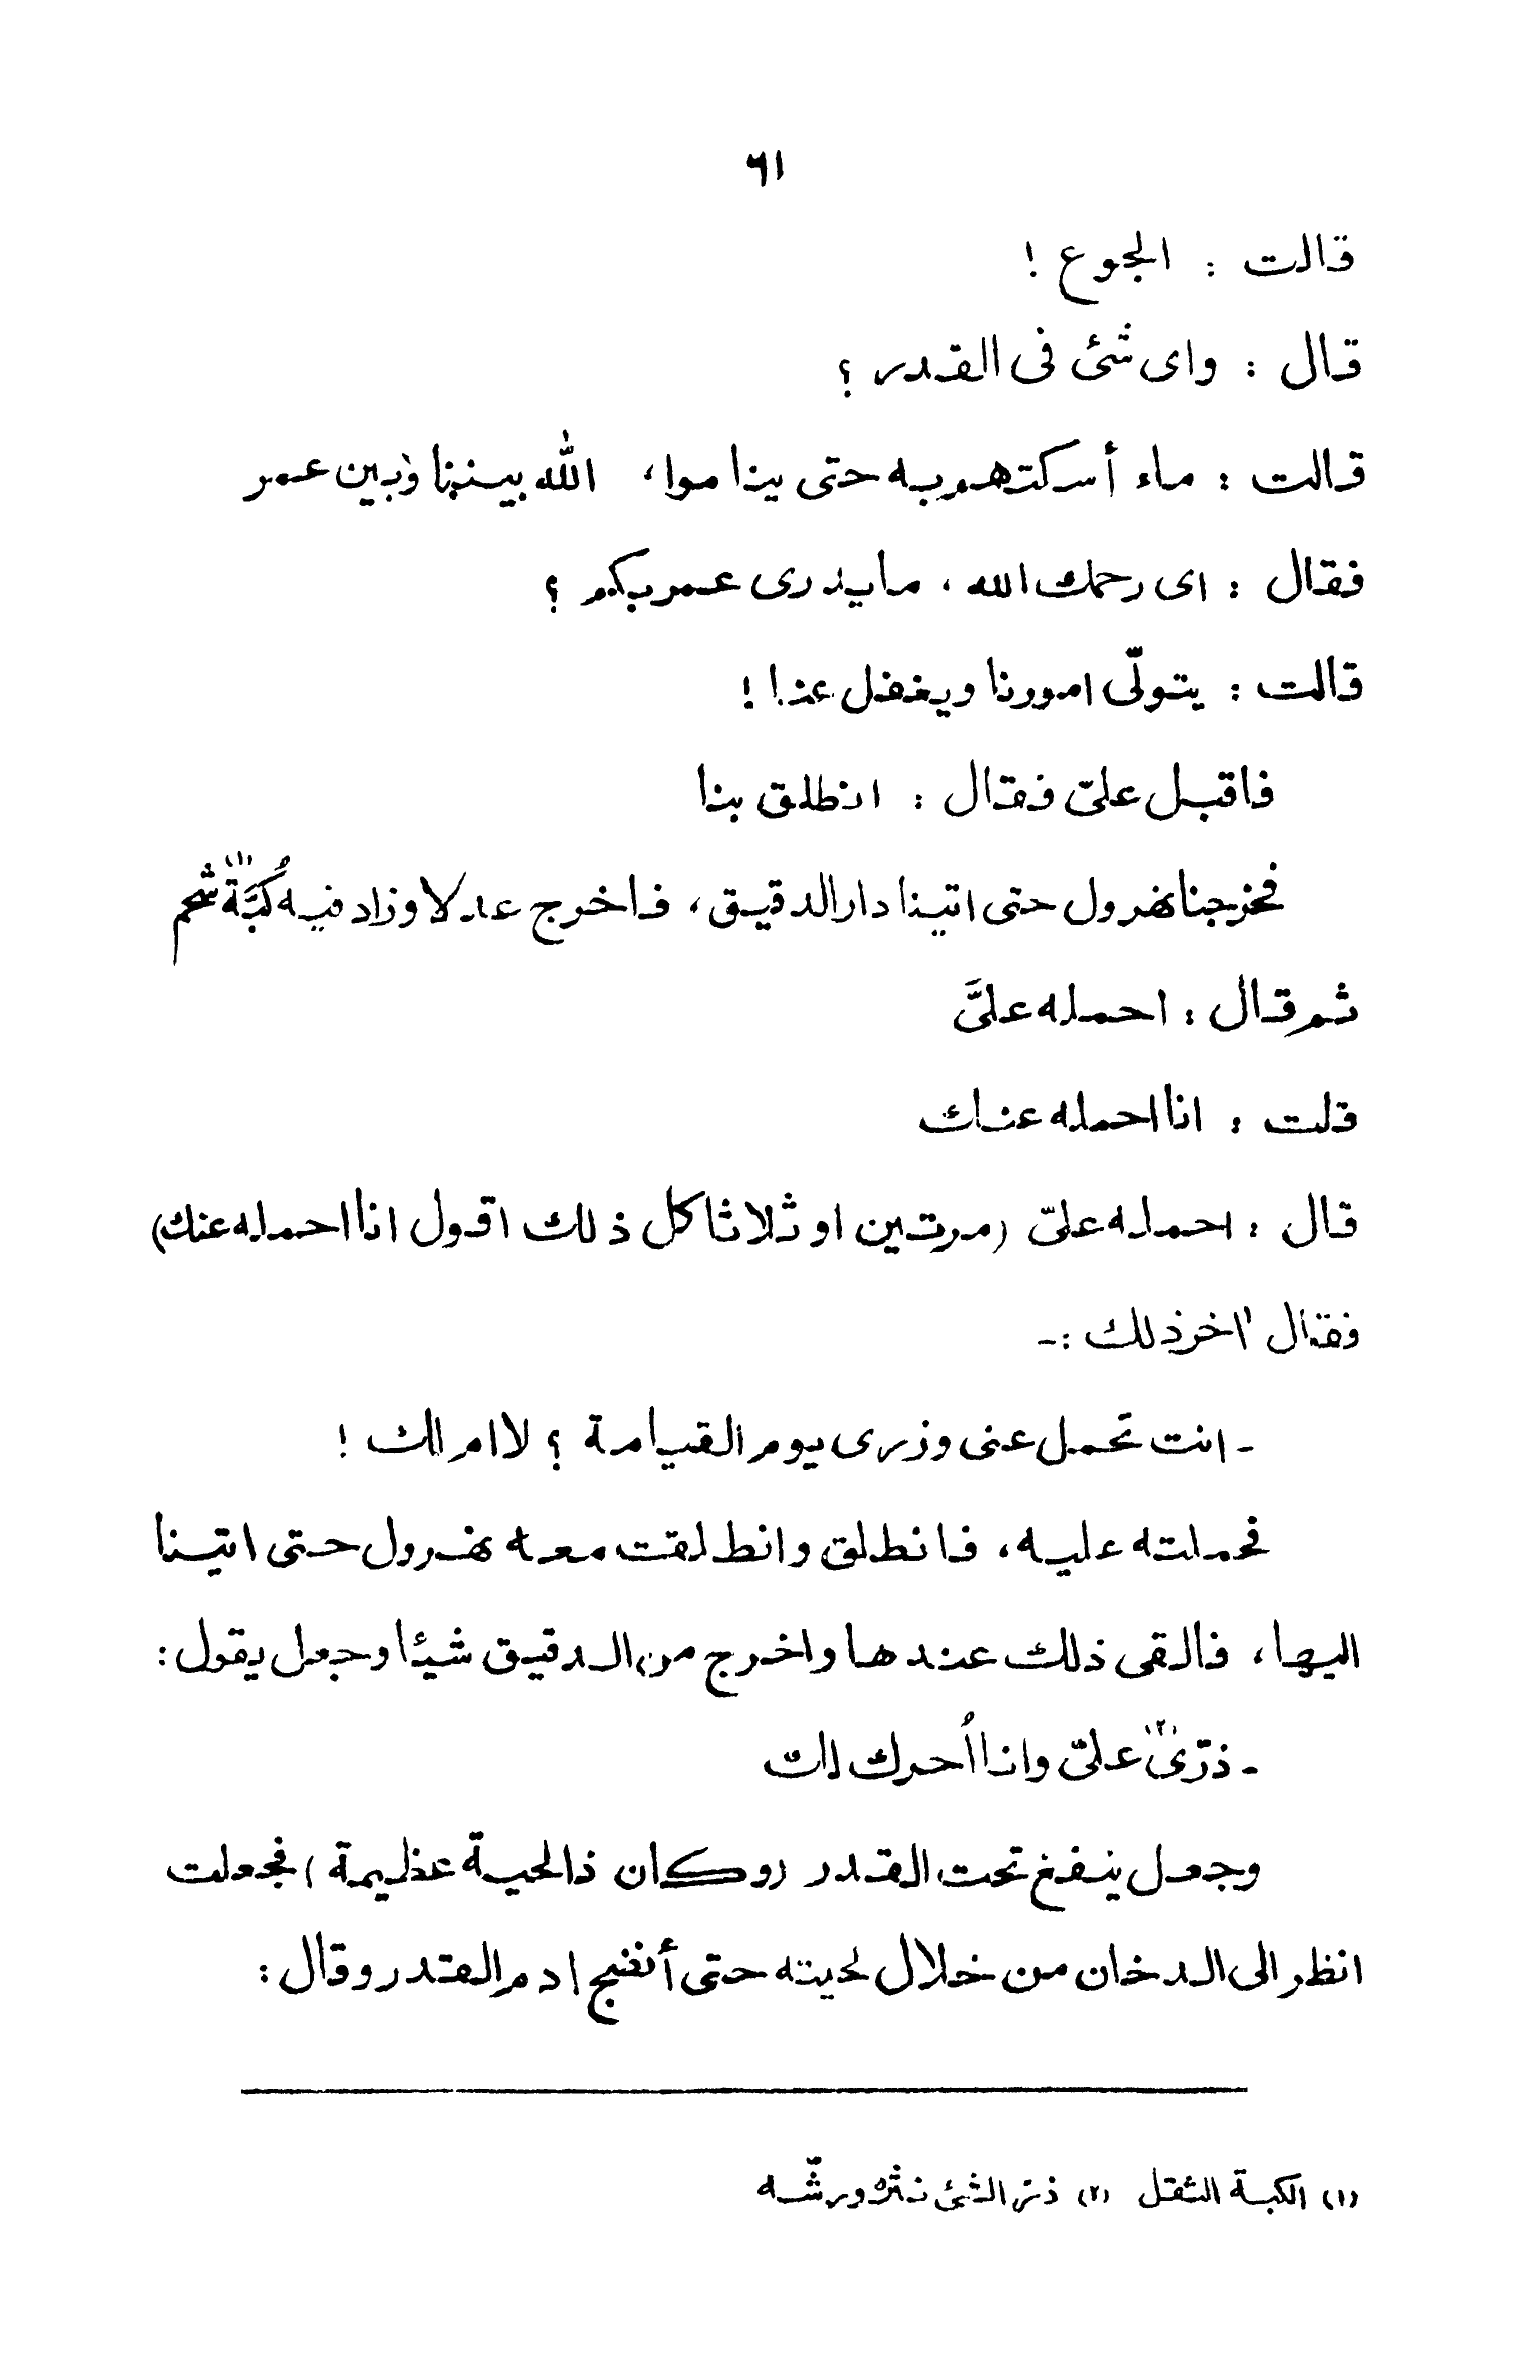 ٦١
قالت : الجوع !
قال : واى شئ فى القدر ؟
قالت : ماء أسكتهم به حتى يناموا، الله بيننا وبين عمر
فقال : اى رحمك الله ، ما يدرى عمر بكم ؟
قالت : يتولّى امورنا ويغفل عنا !
فاقبل علىّ فقال : انطلق بنا
فخرجنا نهرول حتى اتينا دار الدقيق، فاخرج عدلا وزاد فيه كُبَّة (١) شحم
ثم قال : احمله علىَّ
قلت : انا احمله عنك
قال : احمله علىّ (مرتين او ثلاثا كل ذلك اقول انا احمله عنك)
فقال اٰخر ذلك :-
- انت تحمل عنى وزرى يوم القيامة ؟ لا ام لك !
فحملته عليه، فانطلق وانطلقت معه نهرول حتى اتينا
اليها، فالقى ذلك عندها واخرج من الدقيق شيئا وجعل يقول :
- ذرّى (٢) علىّ وانا أُحرك لك
وجعل ينفخ تحت القدر (وكان ذا لحية عظيمة) فجعلت
انظر الى الدخان من خلال لحيته حتى أنضج ادم القدر وقال :
(١) الكبة الثقل (٢) ذر الشئ نثره ورشّه